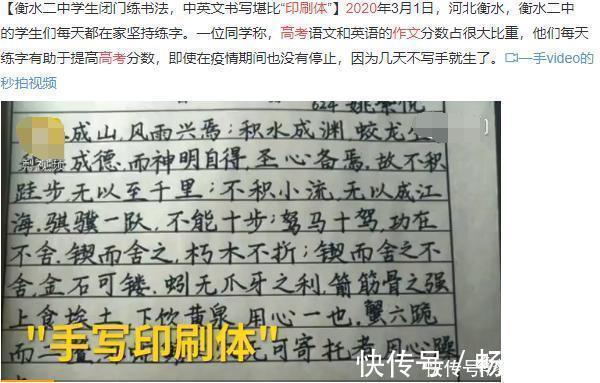 【衡水二中学生闭门练书法，中英文书写堪比“印刷体”】2020年3月1日，河北衡水，衡水二中
的学生们每天都在家坚持练字。一位同学称，高考语文和英语的作文分数占很大比重，他们每天
练字有助于提高高考分数，即使在疫情期间也没有停止，因为几天不写手就生了。一手video的
秒拍视频
624 姚
成山,风雨兴焉;积水成渊,蛟龙
梨视频
成德,而神明自得,圣心备焉,故不积
跬步,无以至千里;不积小流,无以成江
海,骐骥一队,不能十步;驽马十驾,功在
不舍,锲而舍之,朽木不折;锲而舍之不
舍,金石可镂。蚓无爪牙之利,箭筋骨之强
上食埃土,下饮黄泉,用心一也,蟹六跪
而二 可寄托者,用心躁
"手写印刷体"
快传号/畅
快传号/畅